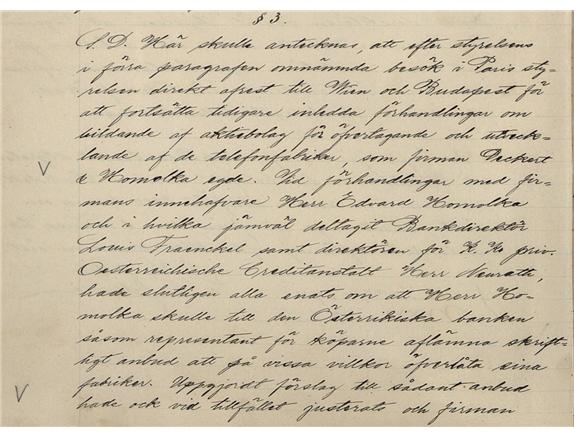 § 3.
S. D. Här skulle antecknas, att efter styrelsens
i förra paragrafen omnämnda besök i Paris sty-
relsen direkt afrest till Wien och Budapest för
att fortsätta tidigare inledda förhandlingar om
bildande af aktiebolag för öfvertagande och utveck-
lande af de telefonfabriker, som firman Deckert
& Homolka egde. Vid förhandlingar med fir-
mans innehafvare Herr Edvard Homolka
och i hvilka jämväl deltagit Bankdirektör
Louis Fraenckel samt direktören för K. K. priv.
Oesterreichische Creditanstalt Herr Neurath,
hade slutligen alla enats om att Herr Ho-
molka skulle till den Österrikiska banken
såsom representant för köparne aflämna skrift-
ligt anbud att på vissa villkor öfverlåta sina
fabriker. Uppgjordt förslag till sådant anbud
hade ock vid tillfället justerats och firman